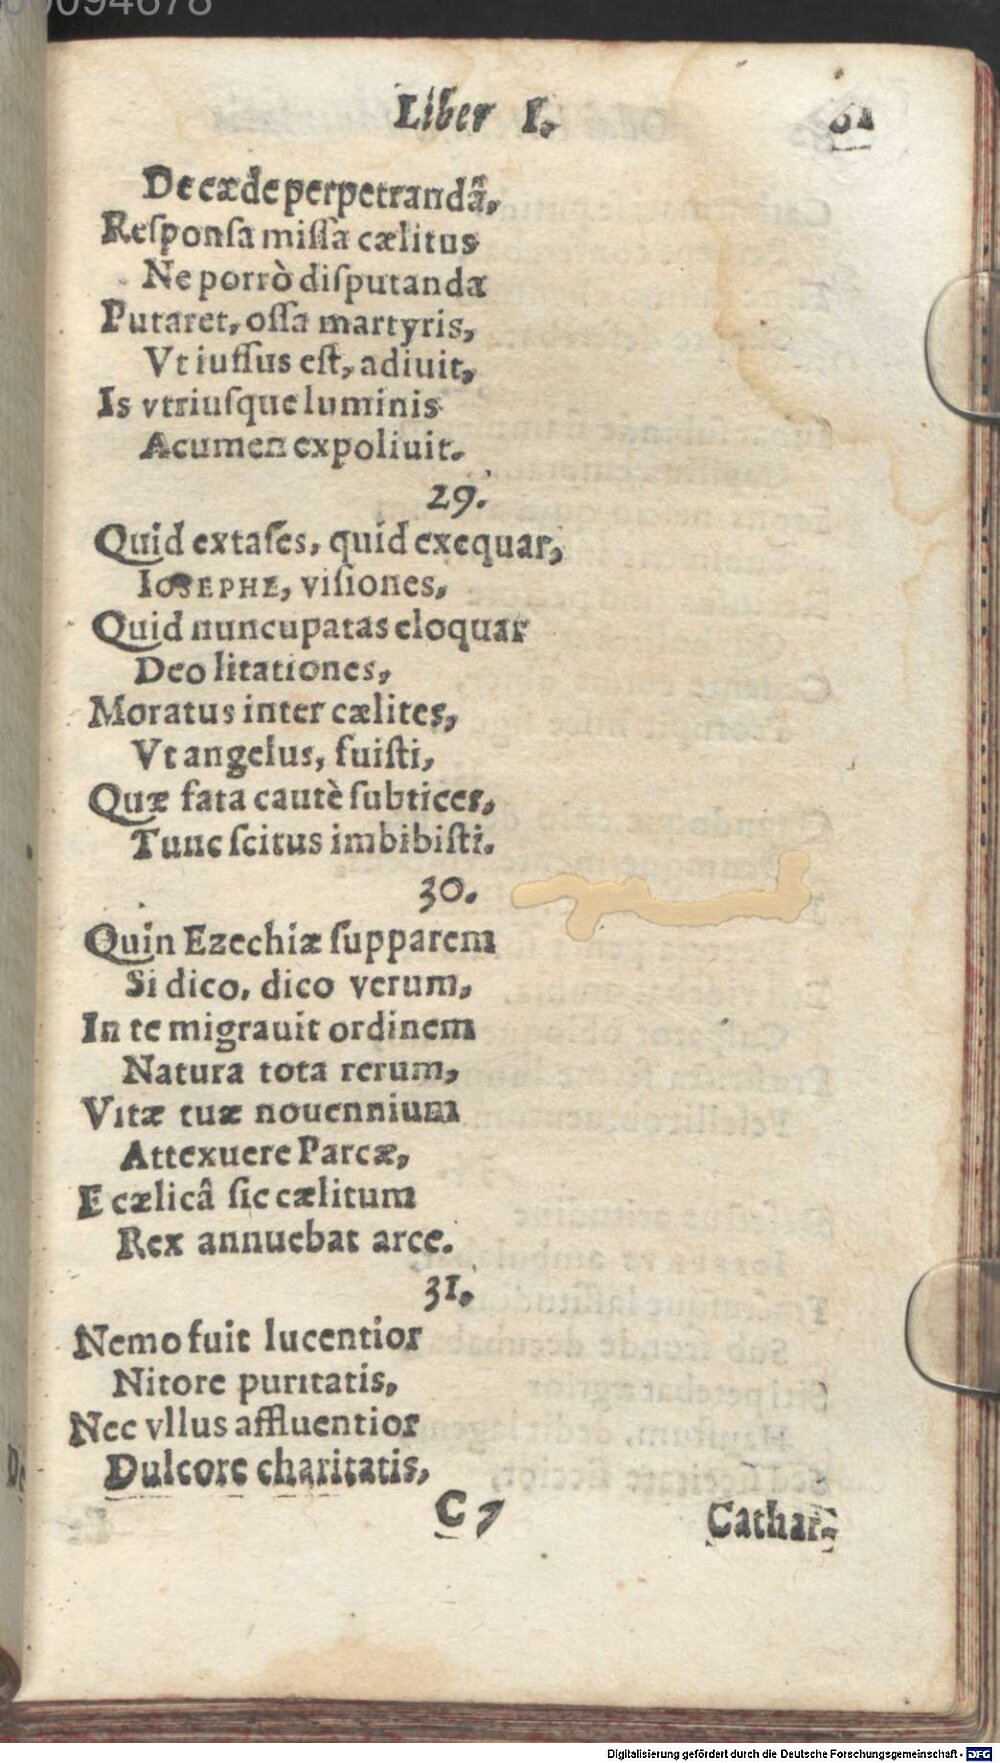 Liber I. 61
De cæde perpetrandâ,
Reſponſa miſſa cælitus
Ne porrò diſputanda
Putaret, oſſa martyris,
Vt iuſſus eſt, adiuit,
Is vtriuſque luminis
Acumen expoliuit.
29.
Quid extaſes, quid exequar,
IOSEPHE, viſiones,
Quid nuncupatas eloquar
Deo litationes,
Moratus inter cælites,
Vt angelus, fuiſti,
Quæ fata cautè ſubtices,
Tunc ſcitus imbibiſti.
30.
Quin Ezechiæ ſupparem
Si dico, dico verum,
In te migrauit ordinem
Natura tota rerum,
Vitæ tuæ nouennium
Attexuere Parcæ,
E cælicâ ſic cælitum
Rex annuebat arce.
31.
Nemo fuit lucentior
Nitore puritatis,
Nec vllus affluentior
Dulcore charitatis,
C 7 Cathar-
Digitalisierung gefördert durch die Deutsche Forschungsgemeinschaft - DFG